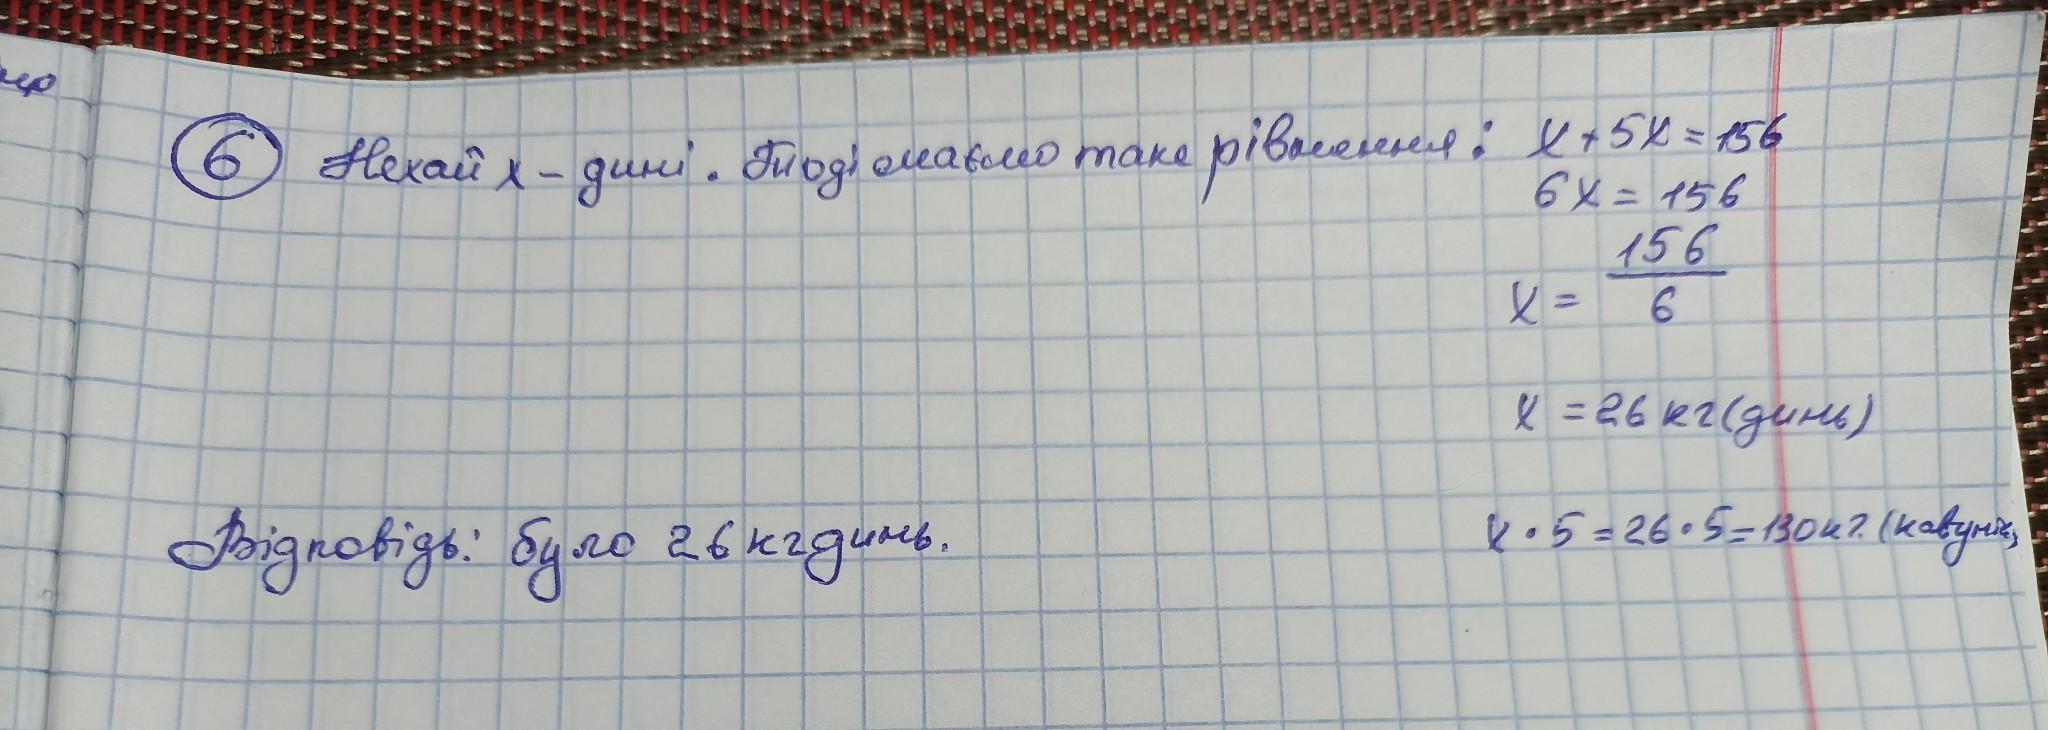 6 Нехай х - дині. Тоді маємо таке рівняння: х + 5х = 156
6х = 156
х = 156/6
х = 26 кг (динь)
х · 5 = 26 · 5 = 130 кг. (кавунів)
Відповідь: було 26 кг динь.